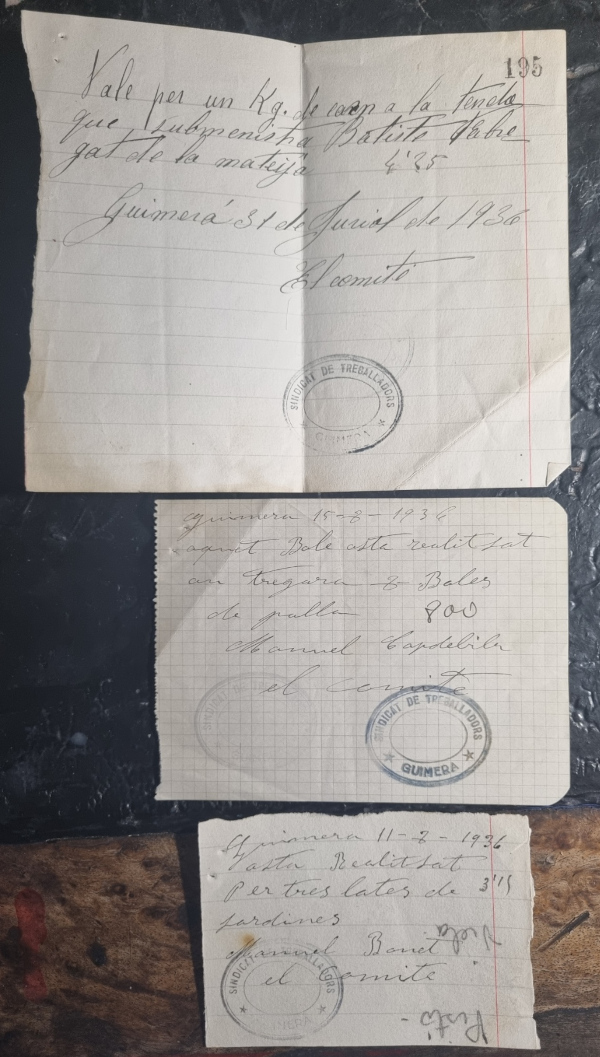 195
Vale per un Kg. de carn a la tenda
que submenistra Batiste Fabre
gat de la mateija 4'25
Guimerá 31 de Juriol de 1936
El comite
SINDICAT DE TREBALLADORS
GUIMERA
Guimera 15-8-1936
aquet Bale asta realitsat
an tregara 8 Bales
de palla 800
Manuel Capdebila
el comite
SINDICAT DE TREBALLADORS
GUIMERA
Guimera 11-8-1936
asta Realitsat
Per tres lates de 3'15
sardines
Manuel Bonet
el Comite
SINDICAT TREBALLADORS
GUIMERA